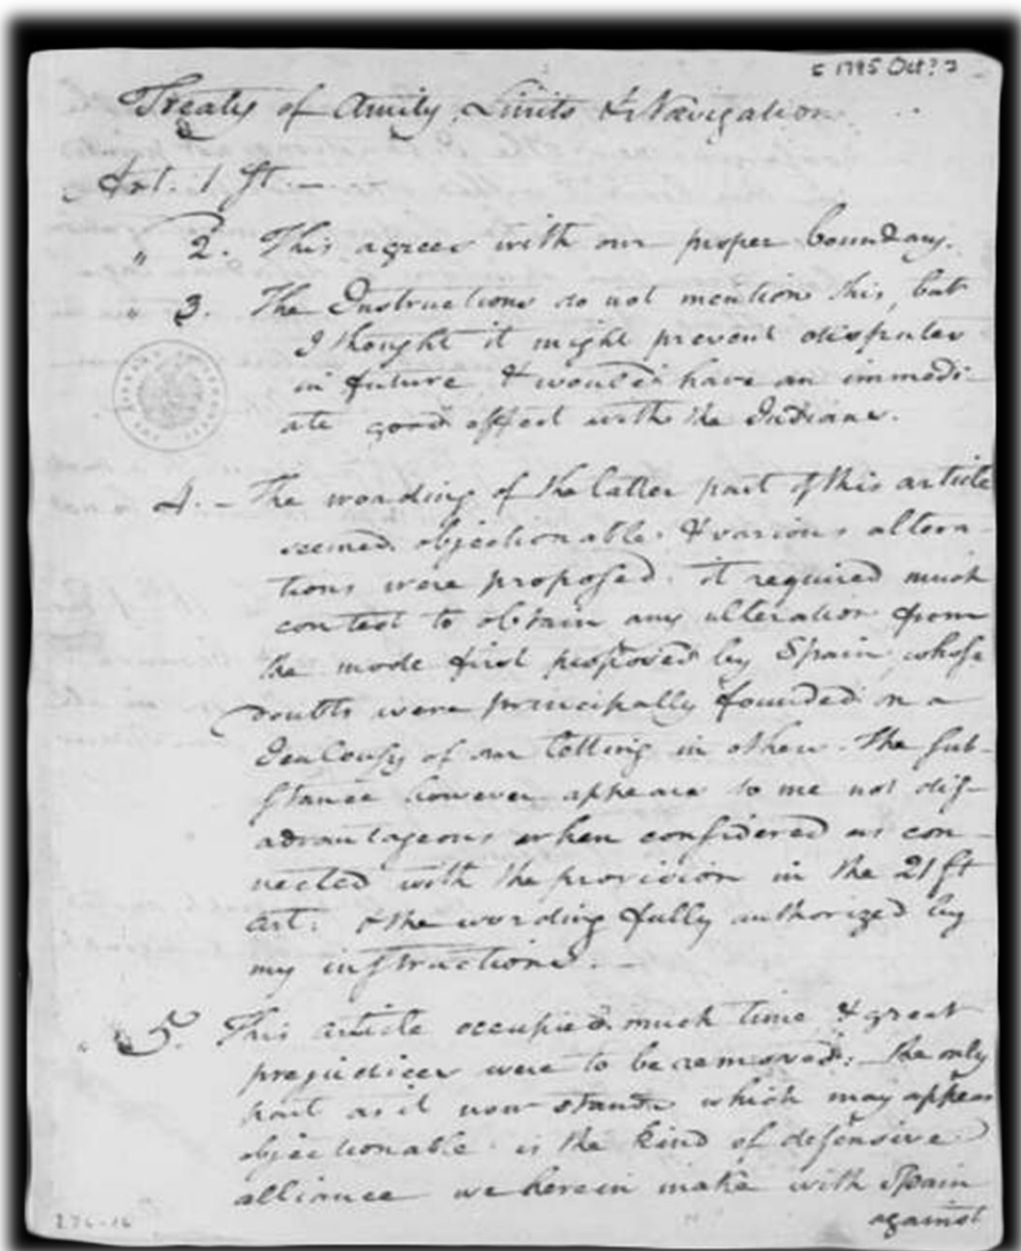 c 1795 Oct? ?
Treaty of Amity, Limits & Navigation
Art. 1st.—
" 2. This agrees with our proper boundary.
" 3. The Instructions do not mention this, but
I thought it might prevent disputes
in future & would have an immedi-
ate good effect with the Indians.
4.- The wording of the latter part of this article
seemed objectionable & various altera-
tions were proposed. it required much
contest to obtain any alteration from
the mode first proposed by Spain, whose
doubts were principally founded on a
Jealousy of our letting in others. The sub-
stance however appears to me not dis-
advantageous when considered as con-
nected with the provision in the 21st
art: & the wording fully authorized by
my instructions.—
5. This article occupied much time & great
prejudices were to be removed: the only
part as it now stands which may appear
objectionable is the kind of defensive
alliance we herein make with Spain
against